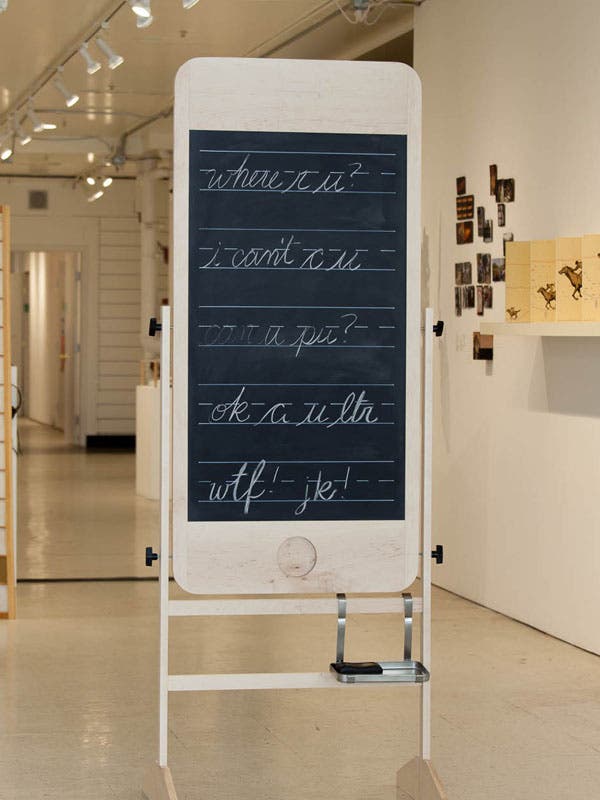 where r u?
i can't c u
can u pu?
ok c u ltr
wtf! jk!